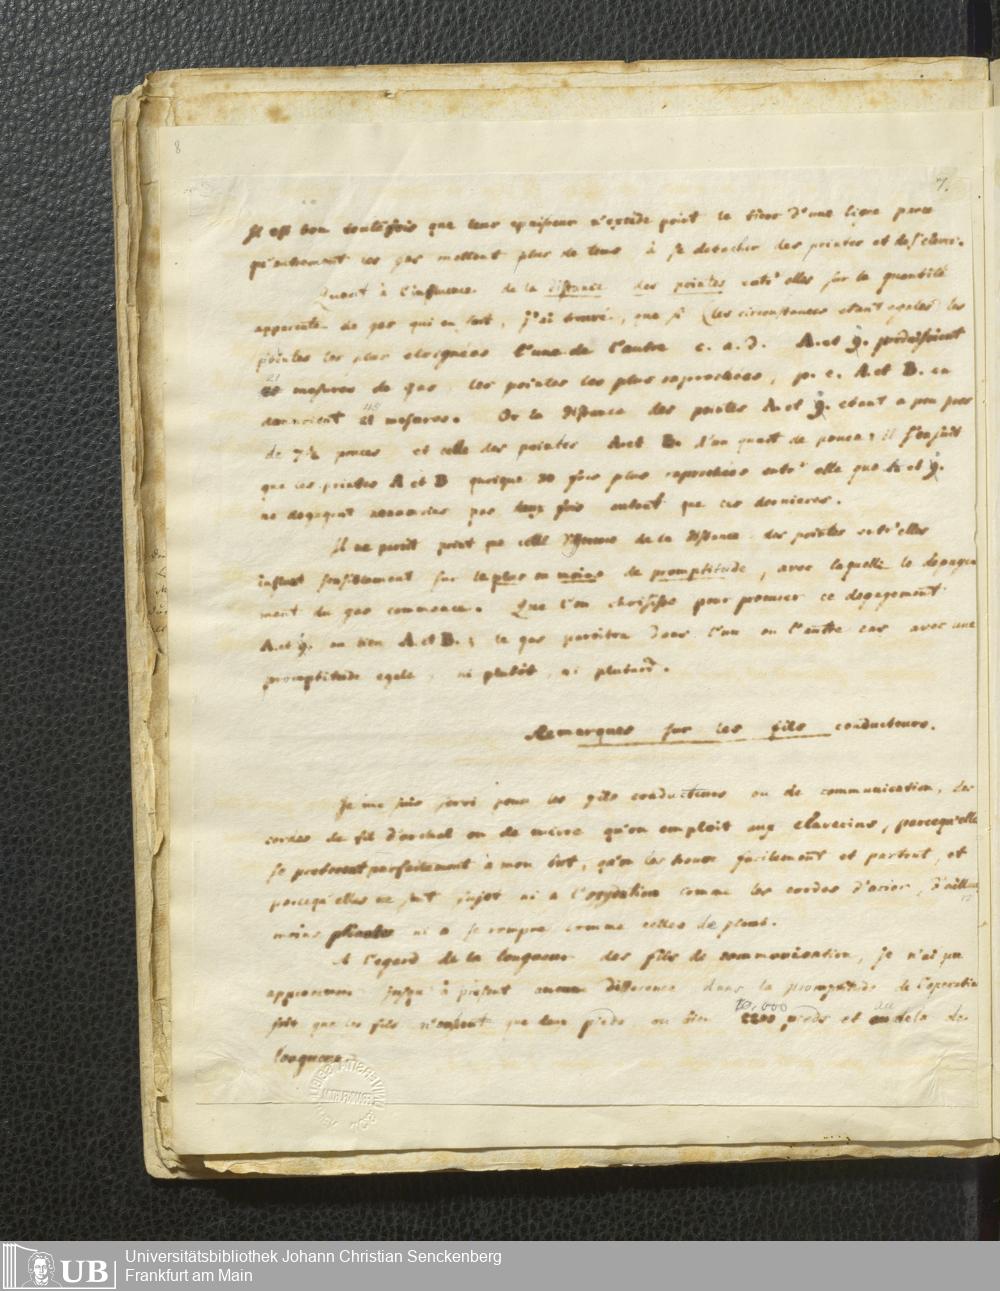 8
7.
Il est bon toutefois que leur epaisseur n'excède point le tiers d'une ligne parce
qu'autrement les gas mettent plus de tems à se detacher des pointes et de s'elever.
Quant à l'influence de la distance des pointes entr'elles sur la quantité
apparente de gas qui en sort, j'ai trouvé, que si (les circonstances etant egales) les
pointes les plus eloignées l'une de l'autre c. a. d. A. et 9. produisoient
21
mesures de gas, les pointes les plus raprochées, p. e. A. et B. en
donnoient 21 mesures. Or la distance des pointes A. et 9. etant a peu pres
de 7½ pouces, et celle des pointes A. et B. d'un quart de pouce; il s'ensuit
que les pointes A et B quoique 30 fois plus raprochées entr'elle que A. et 9.
ne degagent neanmoins pas deux fois autant que ces dernieres.
Il ne paroit point que cette de la distance des pointes entr'elles
influe sensiblement sur le plus ou moins de promptitude, avec laquelle le degage-
ment du gas commence. Que l'on choisisse pour premier ce degagement
A. et 9. ou bien A. et B.; le gas paroitra dans l'un ou l'autre cas avec une
promptitude egale, ni plutôt, ni plutard.
Remarques sur les fils conducteurs.
Je me suis servi pour les fils conducteurs ou de communication, des
cordes de fil d'archal ou de cuivre qu'on emploit aux clavecins, parcequ'elles
se pretent parfaitement à mon but, qu'on les trouve facilement et partout, et
parcequ'elles ne sont sujet ni a l'oxydation comme les cordes d'acier, d'ailleurs
moins pliantes ni a se rompre comme celles de plomb.
A l'egard de la longueur des fils de communication, je n'ai pu
appercevoir jusqu'à présent aucune difference dans la promptitude de l'operation
10,000 au
soit que les fils n'ont que deux pieds, ou bien pieds et au dela de
longueur.
Universitätsbibliothek Johann Christian Senckenberg
Frankfurt am Main
UB